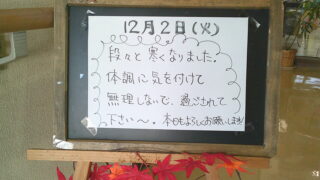 12月2日(火)
段々と寒くなりました。
体調に気を付けて
無理しないで、過ごされて
下さい〜。本日もよろしくお願いします!